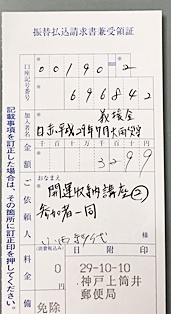 振替払込請求書兼受領証
口座記号番号
00190=2
696842
加入者名
義援金
日赤平成29年7月大雨災害
金額
千百十万千百十円
3299
ご依頼人
おなまえ
開運収納講座②
参加者一同
(消費税込み)
料金
0
円
日附印
29-10-10
神戸上筒井
郵便局
備
免除
記載事項を訂正した場合は、その箇所に訂正印を押してください。